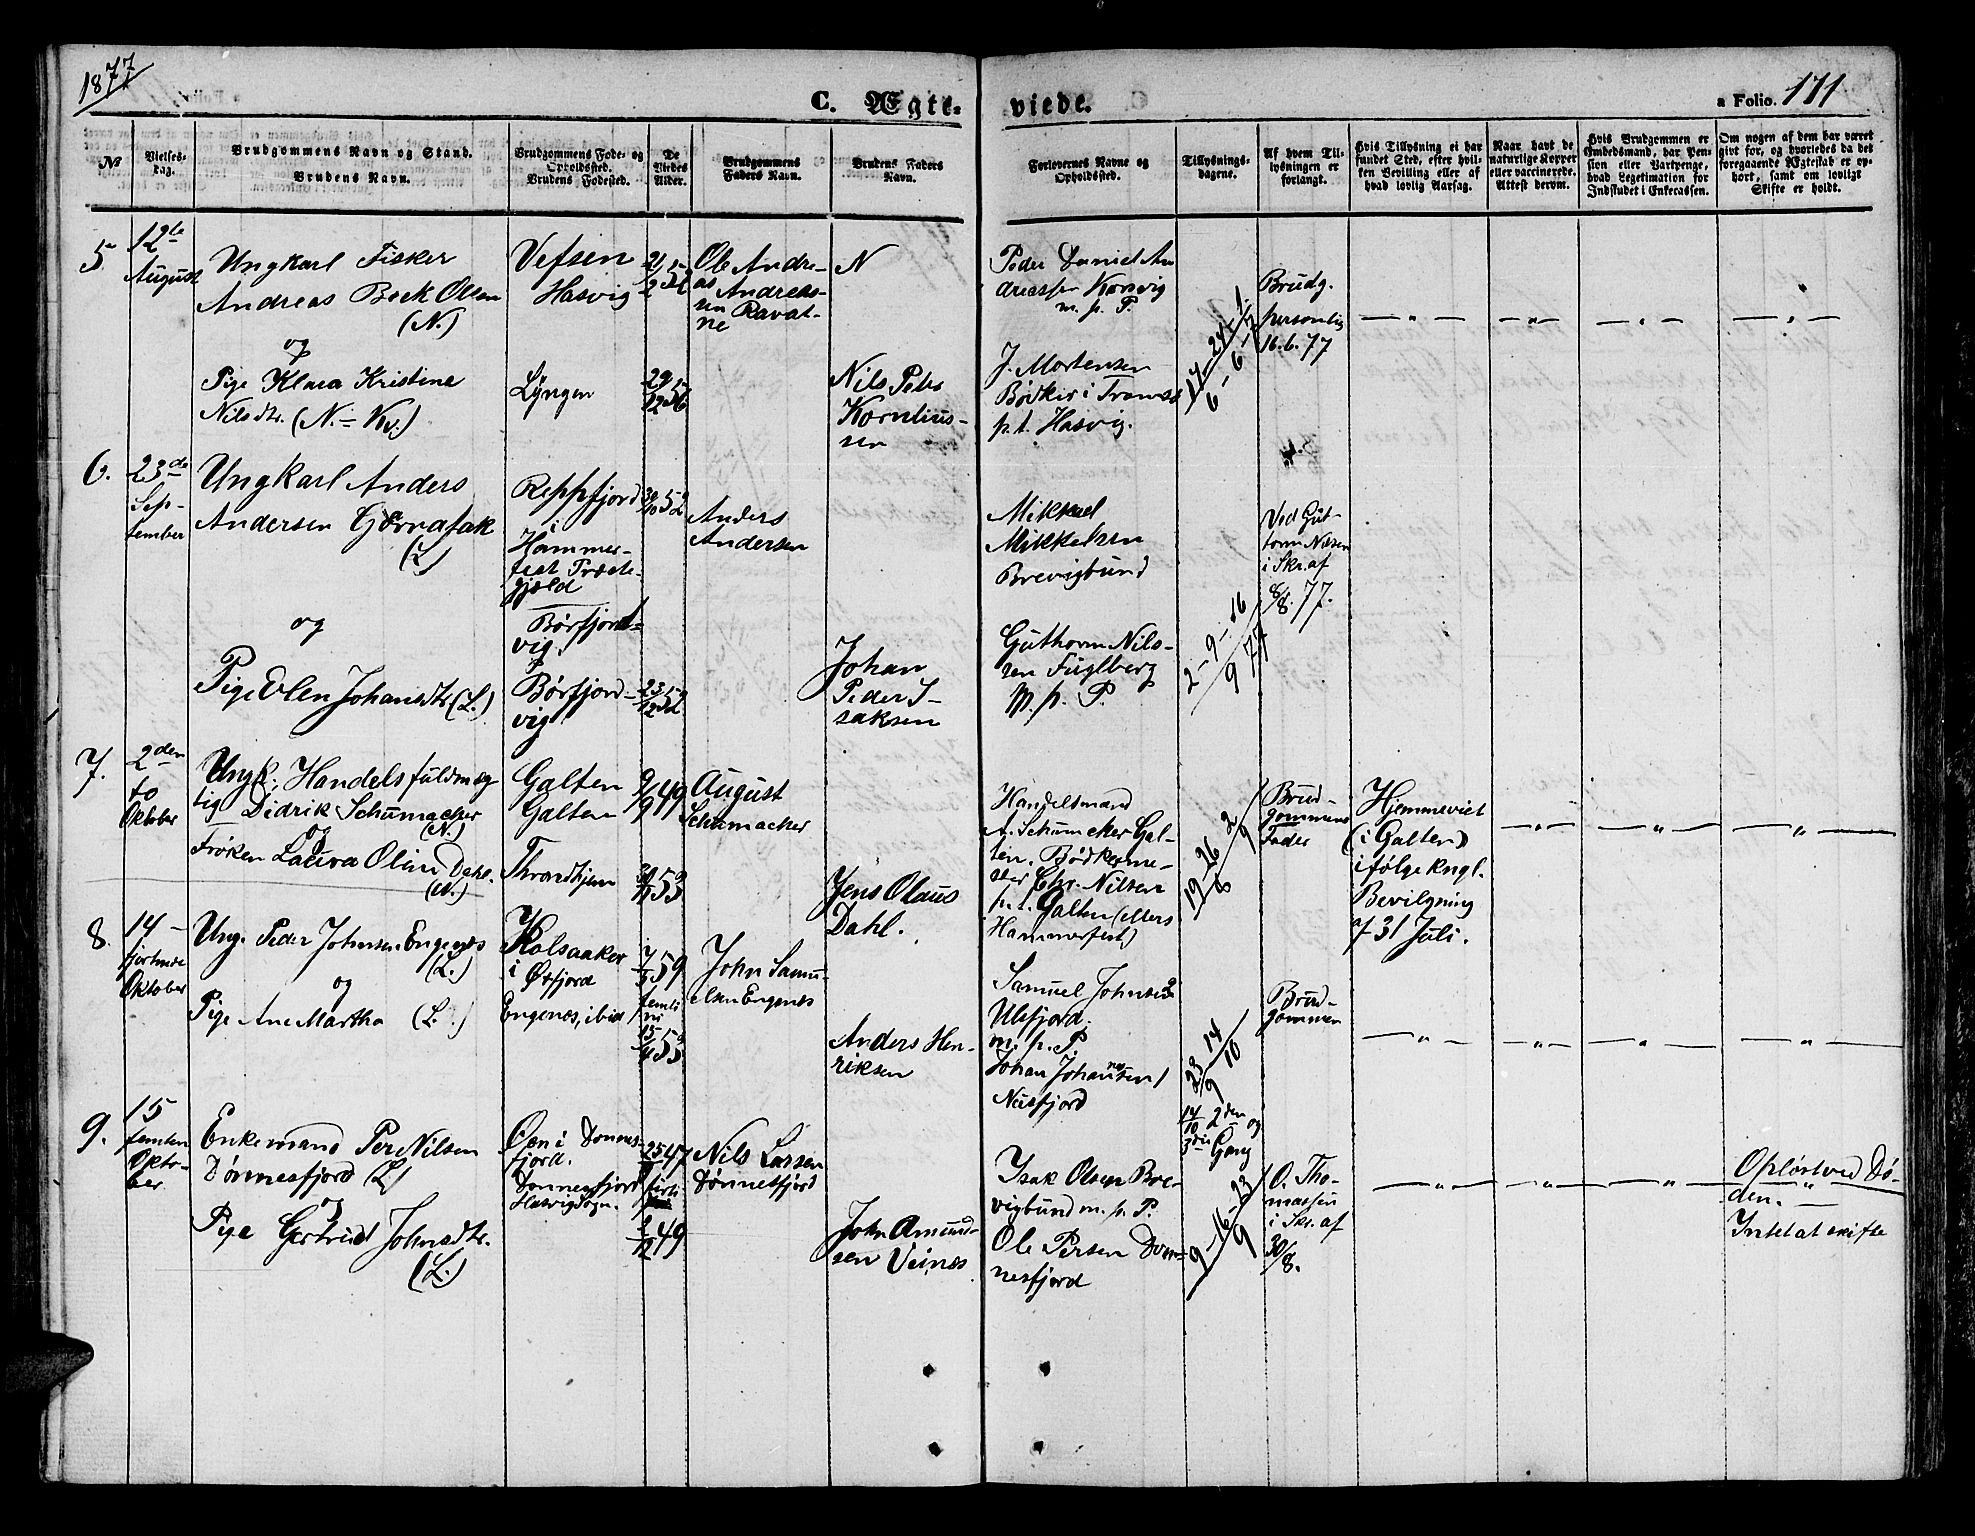 1877
C. Ægteviede.
a Folio. 171
No
Vielses-
dag.
Brudgommens Navn og Stand.
Brudens Navn.
Brudgommens Føde- og
Opholdssted.
Brudens Fødested.
De
Viedes
Alder.
Brudgommens
Faders Navn.
Brudens Faders
Navn.
Forlovernes Navne og
Opholdssted.
Tillysnings-
dagene.
Af hvem Til-
lysningen er
forlangt.
Hvis Tillysning ei har
fundet Sted, efter hvil-
ken Bevilling eller af
hvad lovlig Aarsag.
Naar havt de
naturlige Kopper
eller vaccinerede.
Attest derom.
Hvis Brudgommen er
Embedsmand, har Pen-
sion eller Vartpenge,
hvad Legitimation for
Indskudet i Enkecassen.
Om nogen af dem har været
gift før, og hvorledes da det
foregaaende Ægteskab er op-
hørt, samt om lovligt
Skifte er holdt.
5.
12te
August
Ungkarl Fisker
Andreas Beck Olsen
(N.)
og
Pige Klara Kristine
Nilsdtr. (N. = Kv.)
Vefsen
Hasvig
Lyngen
29/12 56
Ole Andre-
as Andreas-
sen Ravat-
ne
N
Nils Peter
Kornelius-
sen
Peder Daniel An
dreassen Korsvig
m. p. P.
J. Mortensen
Bødker i Tromsø
p.t. Hasvig.
17 - 24/6 - 1/7
Brudg.
personlig
16.6.77
6.
23de
Sep-
tember
Ungkarl Anders
Andersen Gjærnafak
(L)
og
Pige Elen Johansdtr (L.)
Reppfjord
i
Hammer-
fest Præste-
gjæld
Børfjord-
vig.
Børfjord-
vig
30/10 52
23/12 52
Anders
Andersen
Johan
Peder I-
saksen
Mikkel
Mikkelsen
Brevigbund
Guthorm Nils-
sen Fuglberg
m. p. P.
2 - 9 - 16/9 77
Ved Gut-
torm Nilsen
i Skr. af
8/8. 77.
7.
2den
to
Oktober
Ungk: Handelsfuldmæg
tig Didrik Schumacher
(N.)
og
Frøken Laura Oline Dahl.
(N.)
Galten
Galten
Throndhjem
9/9 49
53
August
Schumacher
Jens Olaus
Dahl.
Handelsmand
A. Schumcker Gal-
ten. Bødkerme-
ster Chr. Nilsen
p. t. Galten (ellers
Hammerfest)
19 - 26/8 2/9
Brud-
gommens
Fader
Hjemmeviet
(i Galten)
ifølge kngl.
Bevilgning
af 31 Juli.
8.
14 -
fjortende
Oktober
Ung. Peder Johnsen Engenæs
(L.)
og
Pige Ane Martha (L.)
Kolsaaker
i Øxfjord
Engenæs, ibid
7/5 59
15/4 53
John Samu-
elsen Engenæs
Anders Hen-
riksen
Samuel Johnsen
Ulsfjord.
m. p. P.
Johan Johannsen
Nusfjord
23/9 14/10
14/10 2den og
3die Gang
Brud-
gommen
9.
15
femten
Okto-
ber
Enkemand Per Nilsen
Dønnesfjord (L)
og
Pige Gertrud Johnsdtr.
(L.)
Øen i Dønnes-
fjord.
Dønnesfjord
Hasvig Sogn.
47
49
Nils Larsen
Dønnesfjord
John Amund-
sen Veines
Isak Olsen Bre-
vigbund m. p. P.
Ole Persen Døn-
nesfjord
9 - 16 - 23/9
O. Tho-
massen
i Skr. af
30/8.
Opløst ved Dø-
den. -
Intet at skifte